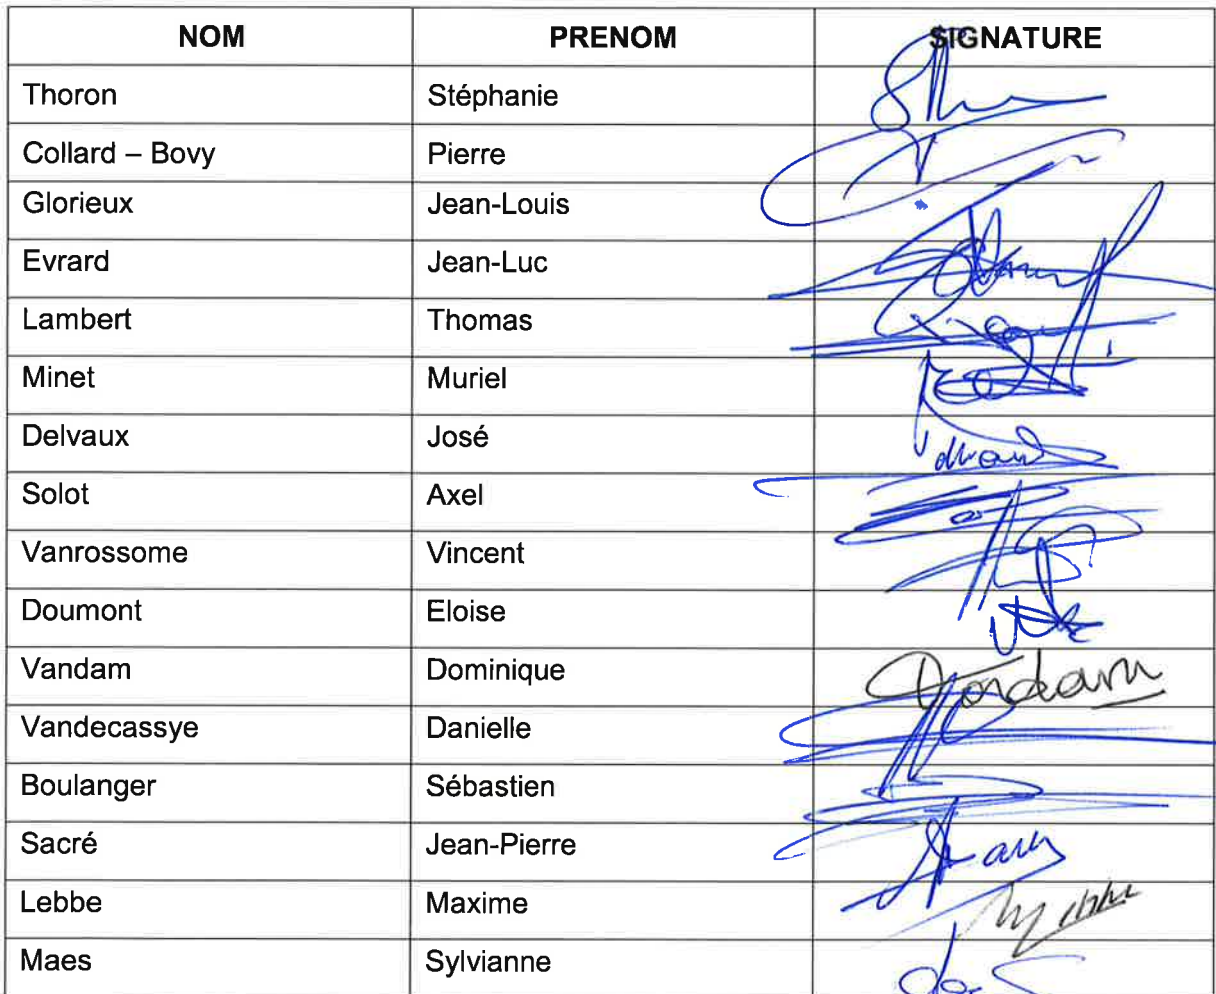 NOM PRENOM SIGNATURE
Thoron Stéphanie
Collard – Bovy Pierre
Glorieux Jean-Louis
Evrard Jean-Luc
Lambert Thomas
Minet Muriel
Delvaux José
Solot Axel
Vanrossome Vincent
Doumont Eloise
Vandam Dominique Vandam
Vandecassye Danielle
Boulanger Sébastien
Sacré Jean-Pierre
Lebbe Maxime
Maes Sylvianne